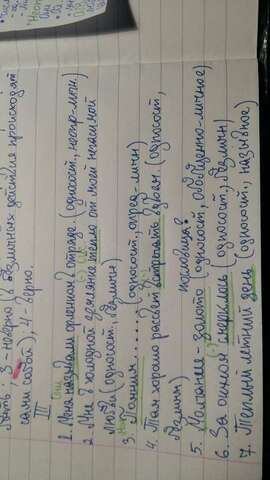 лать; 3 - неверно (в безличных действия происходят
сами собой), 4 - верно.
III
(Они)
1. Меня называли орленком в отряде. (односост., неопр-личн.)
(-)
2. Мне в холодной землянке тепло от моей негасимой
любви (односост., безличн)
3. Помним....... (односост., опред-личн)
(-)
4. Там хорошо рассвет встречать вдвоем. (односост,
безличн)
пословица
5. Молчание - золото (односост., обобщенно-личное)
(-)
6. За окном смерклось (односост., безличн)
7. Теплый летний день (односост., назывное)